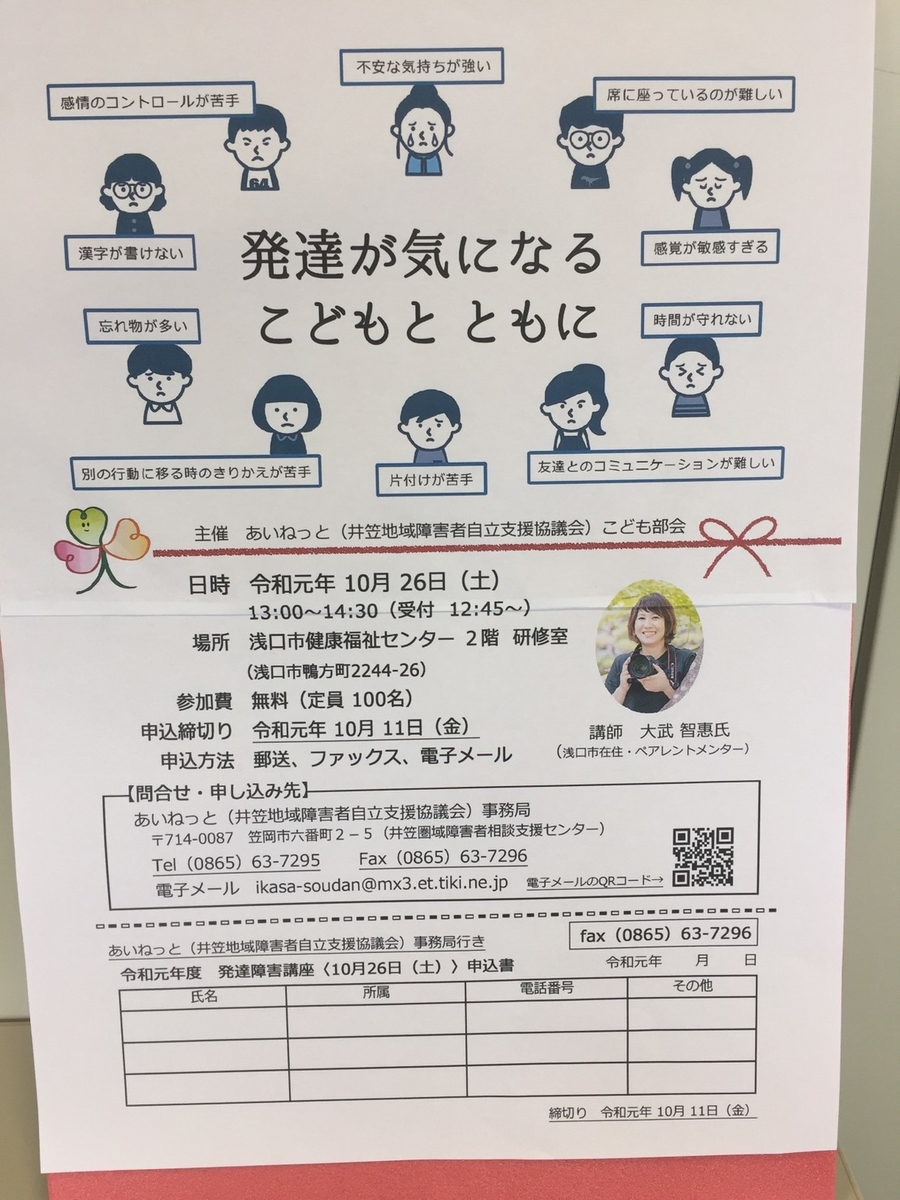 不安な気持ちが強い
感情のコントロールが苦手
席に座っているのが難しい
漢字が書けない
感覚が敏感すぎる
発達が気になる
こどもと ともに
忘れ物が多い
時間が守れない
別の行動に移る時のきりかえが苦手
片付けが苦手
友達とのコミュニケーションが難しい
主催 あいねっと（井笠地域障害者自立支援協議会）こども部会
日時 令和元年 10月 26日（土）
13:00～14:30（受付 12:45～）
場所 浅口市健康福祉センター 2階 研修室
（浅口市鴨方町2244-26）
参加費 無料（定員 100名）
申込締切り 令和元年 10月 11日（金）
申込方法 郵送、ファックス、電子メール
講師 大武 智恵氏
（浅口市在住・ペアレントメンター）
【問合せ・申し込み先】
あいねっと（井笠地域障害者自立支援協議会）事務局
〒714-0087 笠岡市六番町２－５（井笠圏域障害者相談支援センター）
Tel（0865）63-7295 Fax（0865）63-7296
電子メール ikasa-soudan@mx3.et.tiki.ne.jp 電子メールのQRコード→
あいねっと（井笠地域障害者自立支援協議会）事務局行き
fax（0865）63-7296
令和元年度 発達障害講座〈10月26日（土）〉申込書
令和元年 月 日
氏名 所属 電話番号 その他
締切り 令和元年 10月 11日（金）